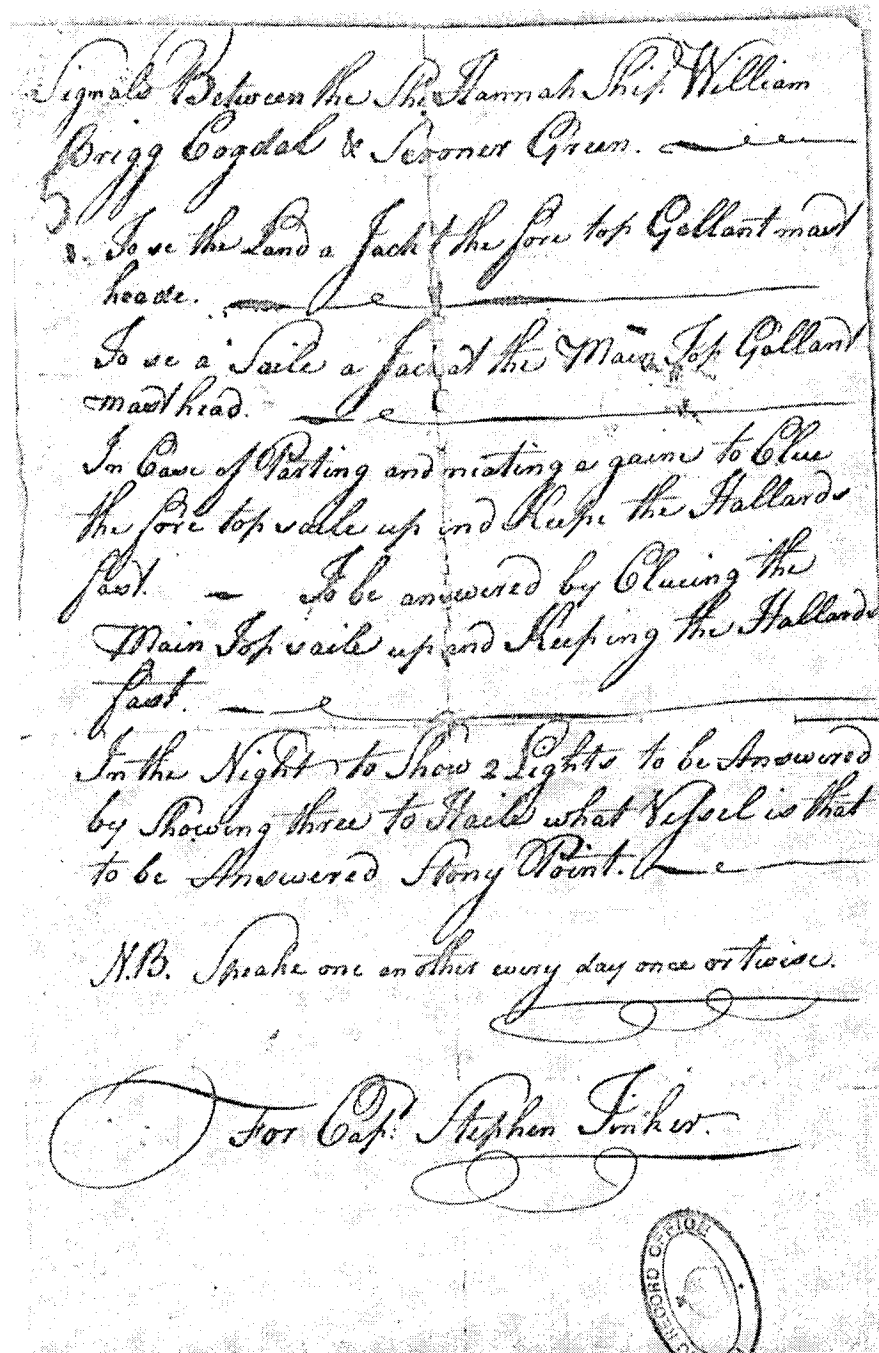 Signals Between the Ship Hannah Ship William
Brigg Cogdal & Scooner Green.
To se the Land a Jack t the fore top Gallant mast
heade.
To se a Saile a Jack at the Main Top Gallant
mast head.
In Case of Parting and meating a gaine to Clue
the fore top saile up and Keepe the Hallards
fast. — To be answered by Clueing the
Main Top saile up and Keeping the Hallards
fast.
In the Night to Show 2 Lights to be Answered
by Showing three to Haile what Vessel is that
to be Answered Stony Point.
N.B. Speake one another every day once or twise.
For Capt. Stephen Tinker.
RECORD OFFICE